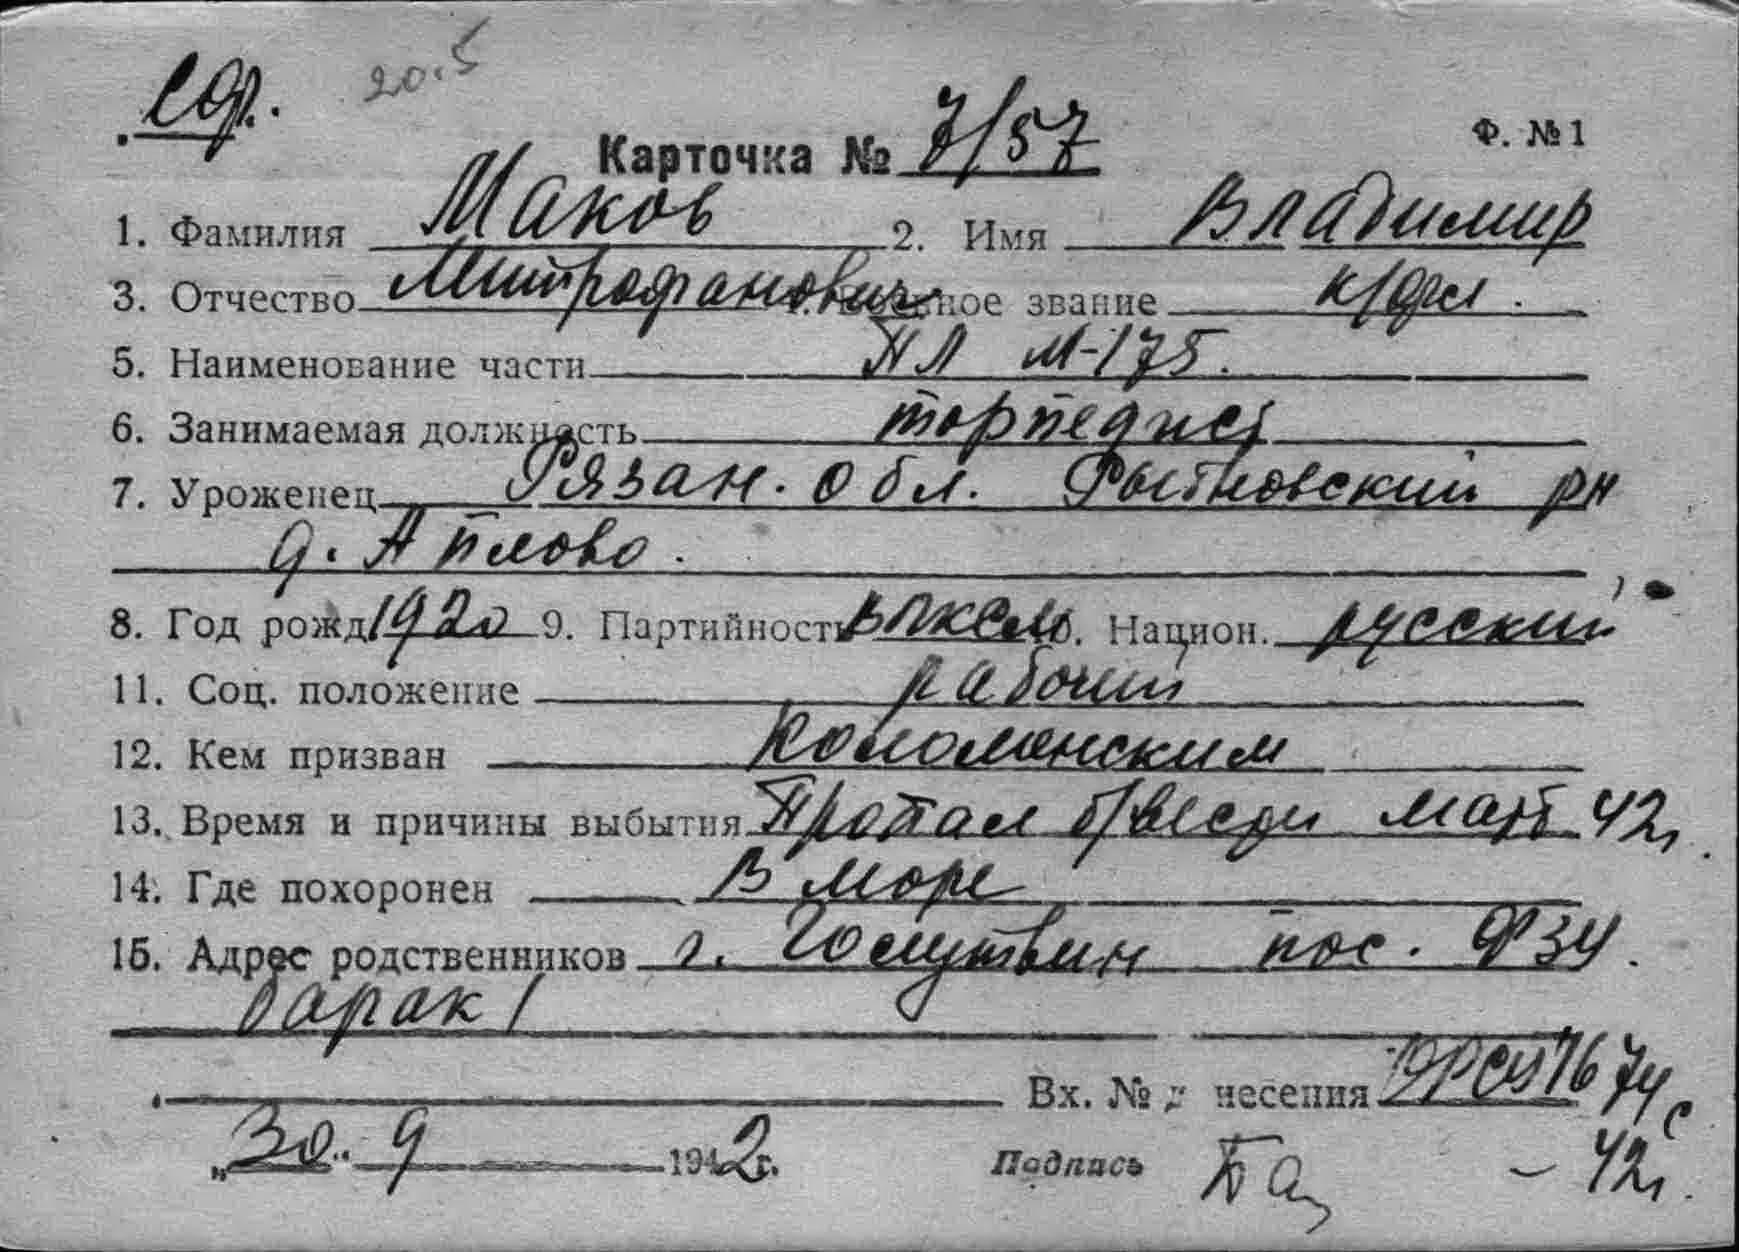 СФ. 20.5
Карточка № 7/57 Ф. №1
1. Фамилия Маков 2. Имя Владимир
3. Отчество Митрофанович Военное звание к/фл.
5. Наименование части ПЛ М-175.
6. Занимаемая должность торпедист
7. Уроженец Рязан. обл. Рыбновский рн
д. Аплово.
8. Год рожд 1920 9. Партийность ВЛКСМ 10. Национ. русский
11. Соц. положение рабочий
12. Кем призван Коломенским
13. Время и причины выбытия Пропал б/вести март 42г.
14. Где похоронен В море
15. Адрес родственников г. Голутвин пос. ФЗУ.
барак 1
Вх. № донесения 7674с
„30" 9 1942г. Подпись – 42г.